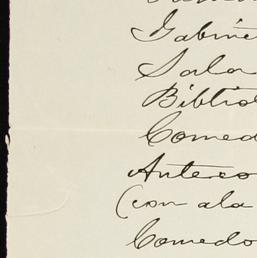 Gabine
Sala
Biblio
Comed
Anteco
(con ala
Comedo